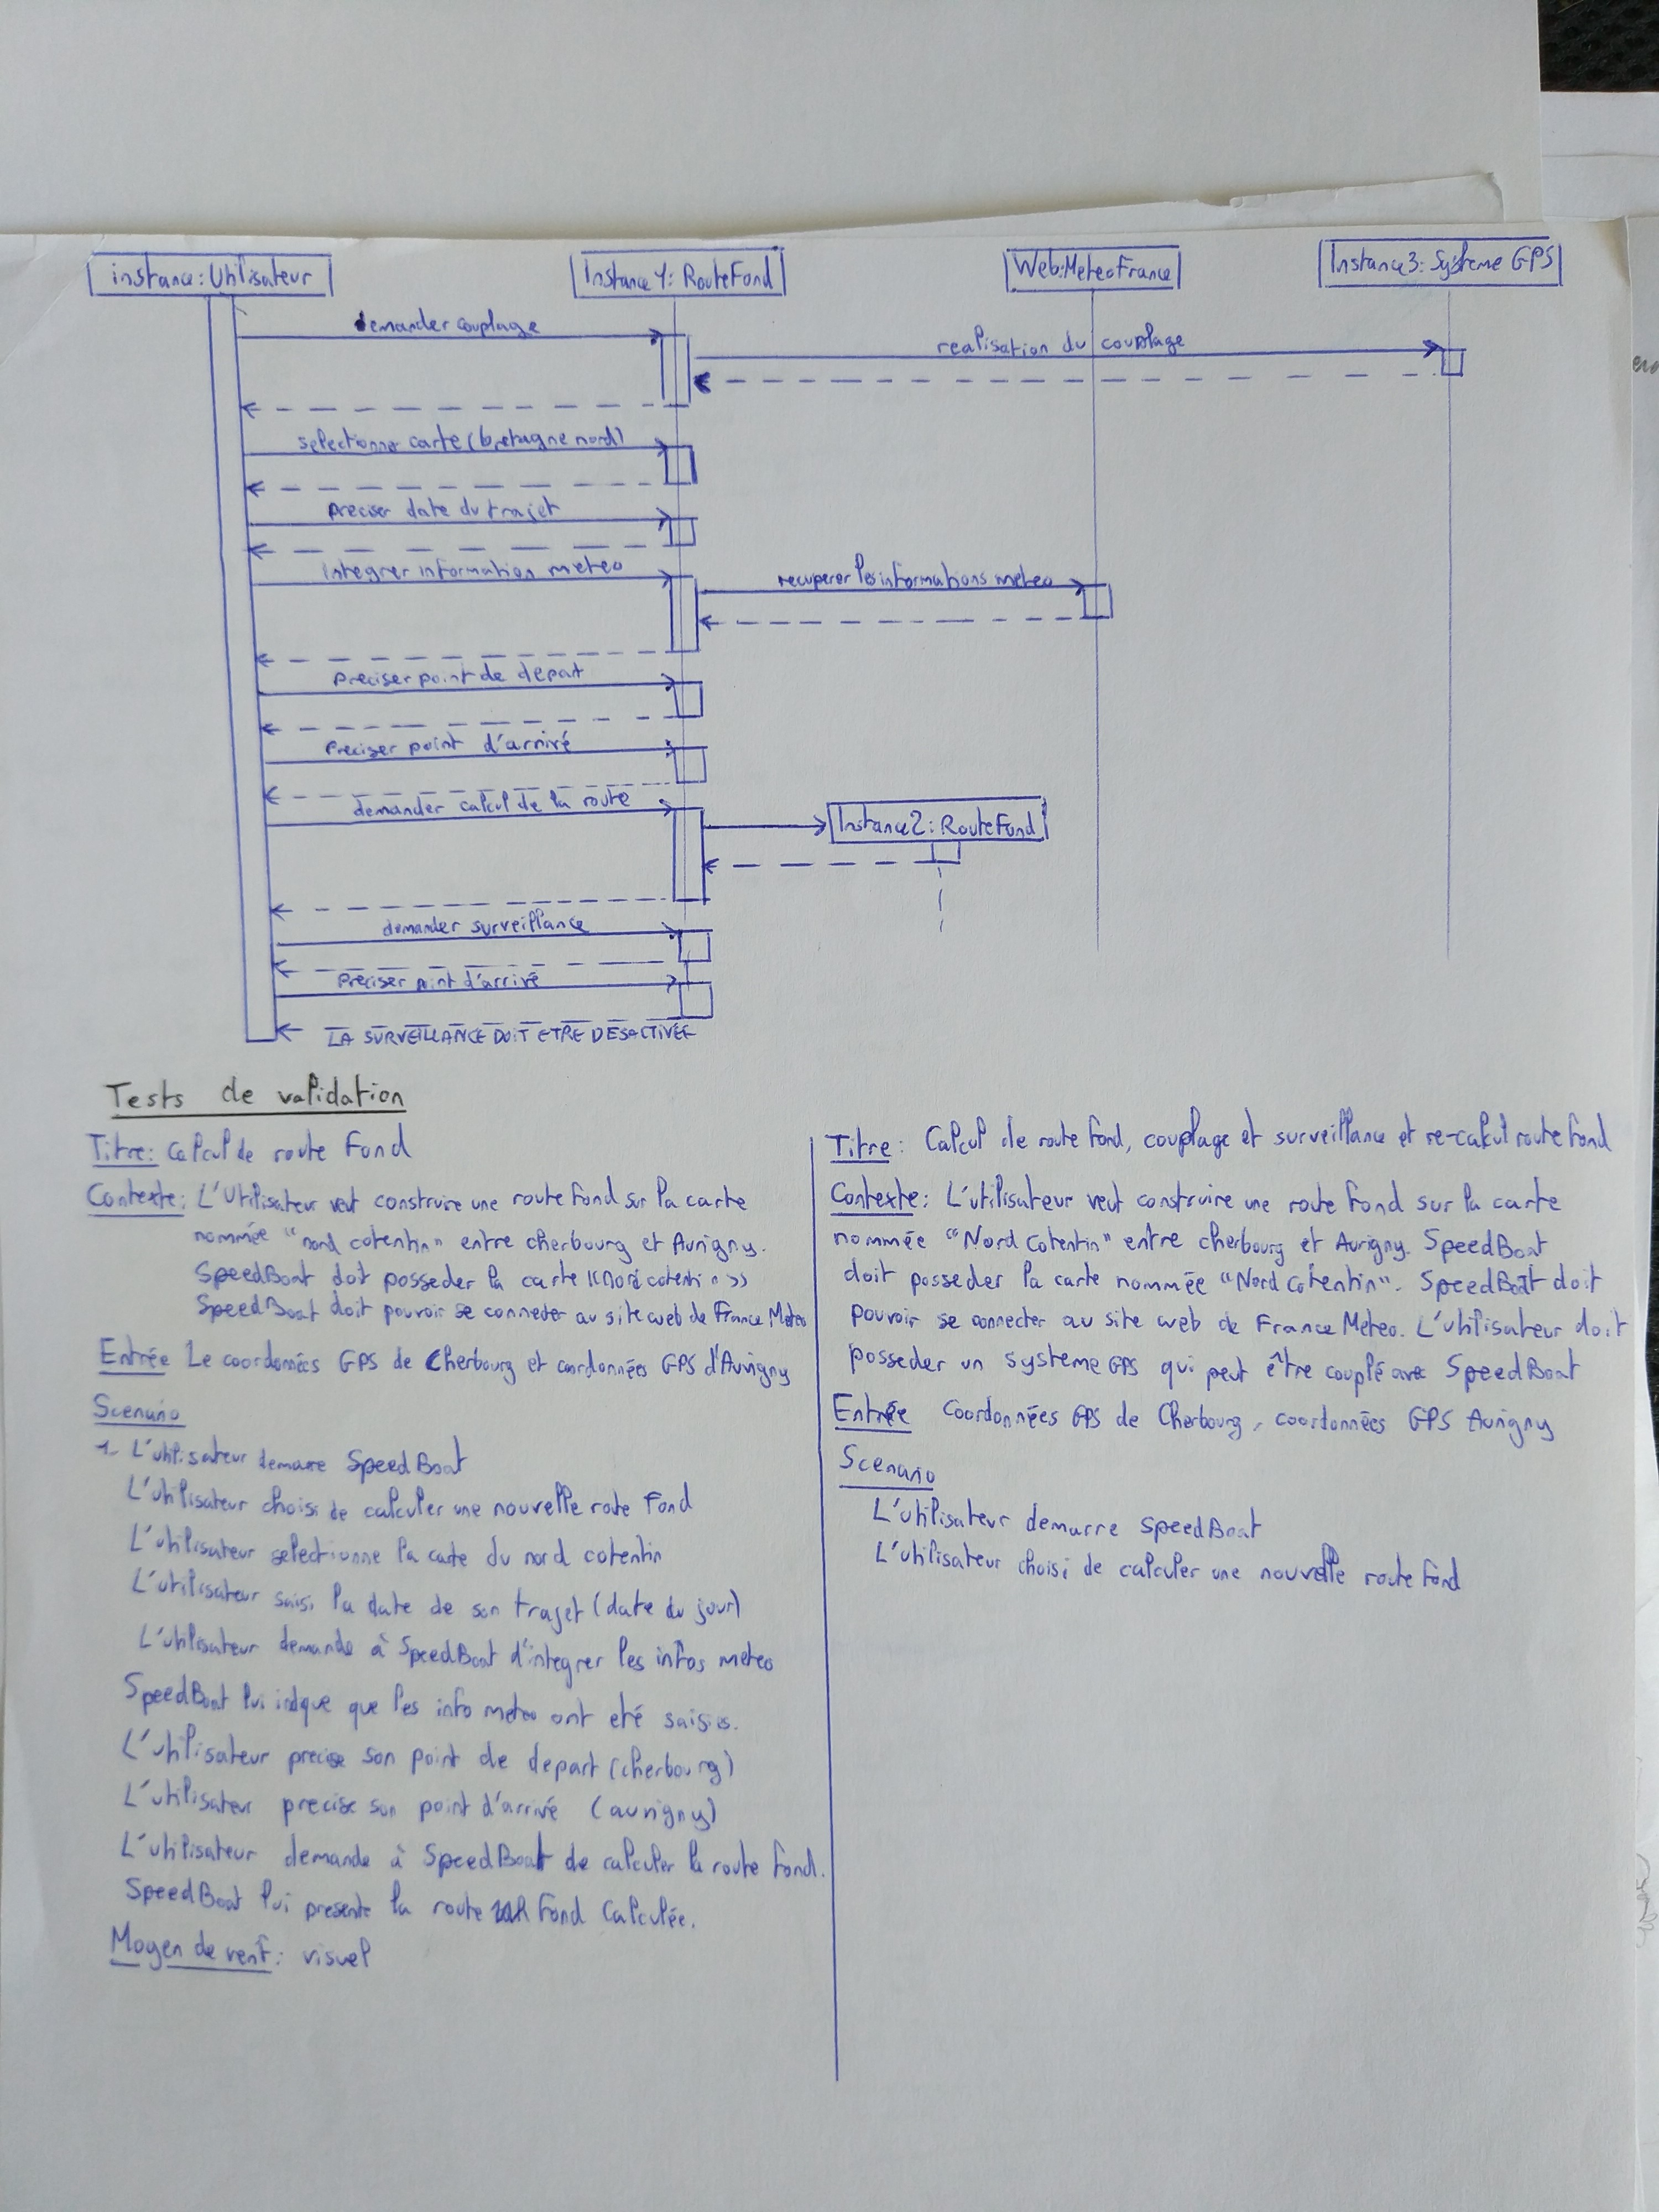 instance:Utilisateur
Instance 1: RouteFond
Web:MeteoFrance
Instance3: Système GPS
demander couplage
realisation du couplage
selectionner carte (bretagne nord)
Preciser date du trajet
Integrer information meteo
recuperer les informations meteo
Preciser point de depart
Preciser point d'arrivé
demander calcul de la route
Instance2: RouteFond
demander surveillance
Préciser point d'arrivé
LA SURVEILLANCE DOIT ETRE DESACTIVEE
Tests de validation
Titre: Calcul de route Fond
Contexte: L'Utilisateur veut construire une route fond sur la carte
nommée "nord cotentin" entre cherbourg et Aurigny.
SpeedBoat doit posseder la carte «Nord cotentin»
SpeedBoat doit pouvoir se connecter au site web de France Meteo
Entrée Le coordonnées GPS de Cherbourg et coordonnées GPS d'Aurigny
Scenario
1- L'utilisateur demarre SpeedBoat
L'utilisateur choisi de calculer une nouvelle route Fond
L'utilisateur selectionne la carte du nord cotentin
L'utilisateur saisi la date de son trajet (date du jour)
L'utilisateur demande à SpeedBoat d'integrer les infos meteo
SpeedBoat lui indique que les info meteo ont eté saisies.
L'utilisateur precise son point de depart (cherbourg)
L'utilisateur precise son point d'arrivé (aurigny)
L'utilisateur demande à SpeedBoat de calculer la route fond.
SpeedBoat lui presente la route Fond Calculée.
Moyen de verif: visuel
Titre: Calcul de route fond, couplage et surveillance et re-calcul route fond
Contexte: L'utilisateur veut construire une route fond sur la carte
nommée "Nord Cotentin" entre cherbourg et Aurigny. SpeedBoat
doit posseder la carte nommée "Nord Cotentin". SpeedBoat doit
pouvoir se connecter au site web de France Meteo. L'utilisateur doit
posseder un systeme GPS qui peut être couplé avec SpeedBoat
Entrée Coordonnées GPS de Cherbourg, coordonnées GPS Aurigny
Scenario
L'utilisateur demarre SpeedBoat
L'utilisateur choisi de calculer une nouvelle route fond